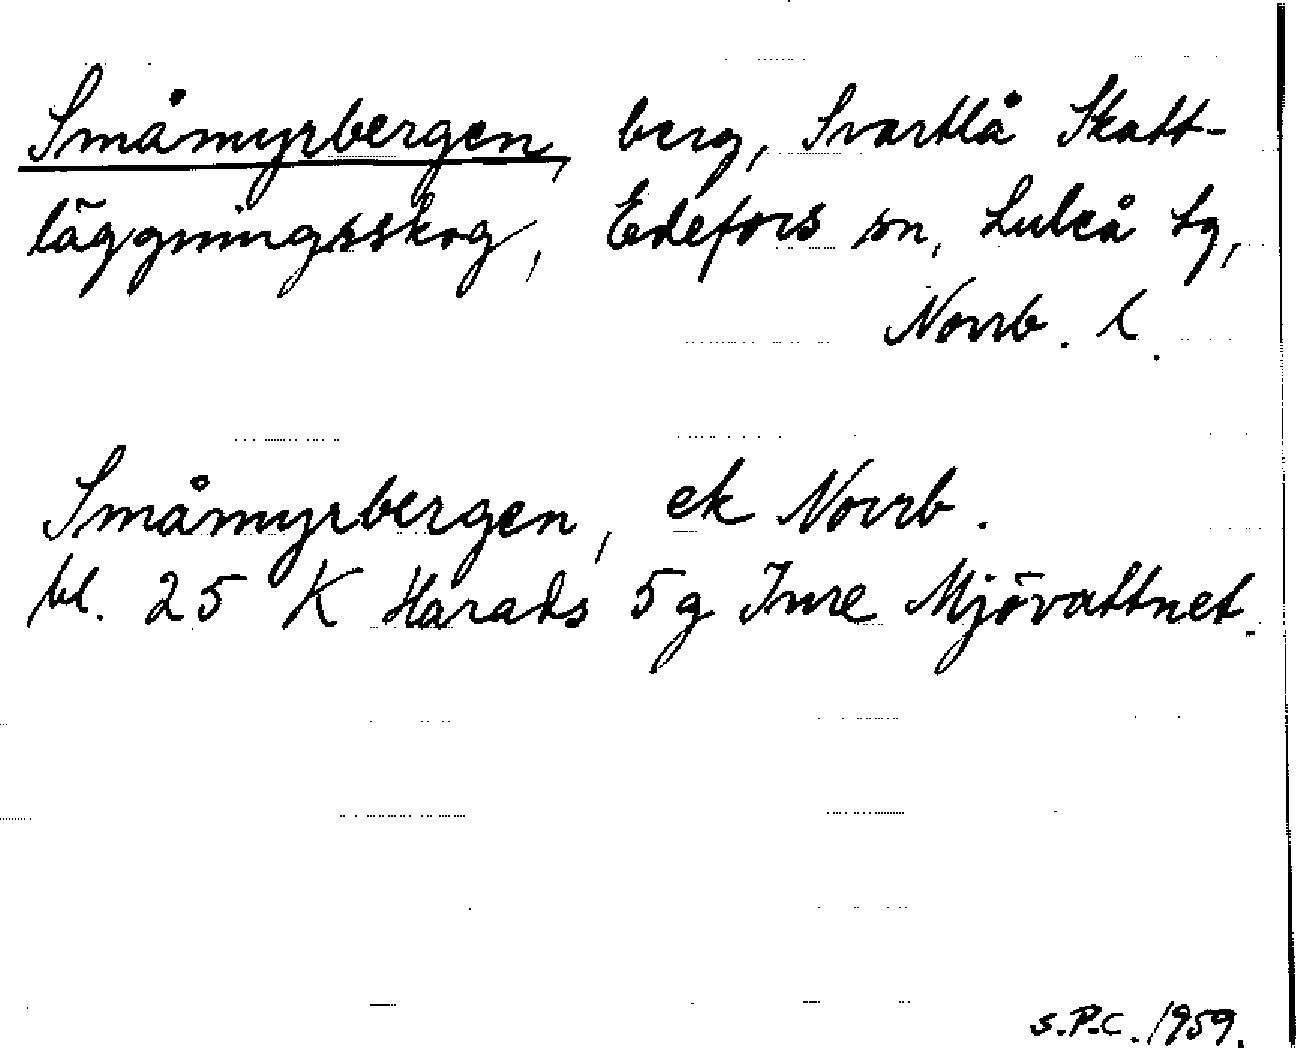 Småmyrbergen, berg, Svartlå Skatt-
läggningsskog, Edefors sn, Luleå tg,
Norrb. l.
Småmyrbergen, ek Norrb.
bl. 25 K Harads 5g Inre Mjövattnet.
S.P.C. 1959.